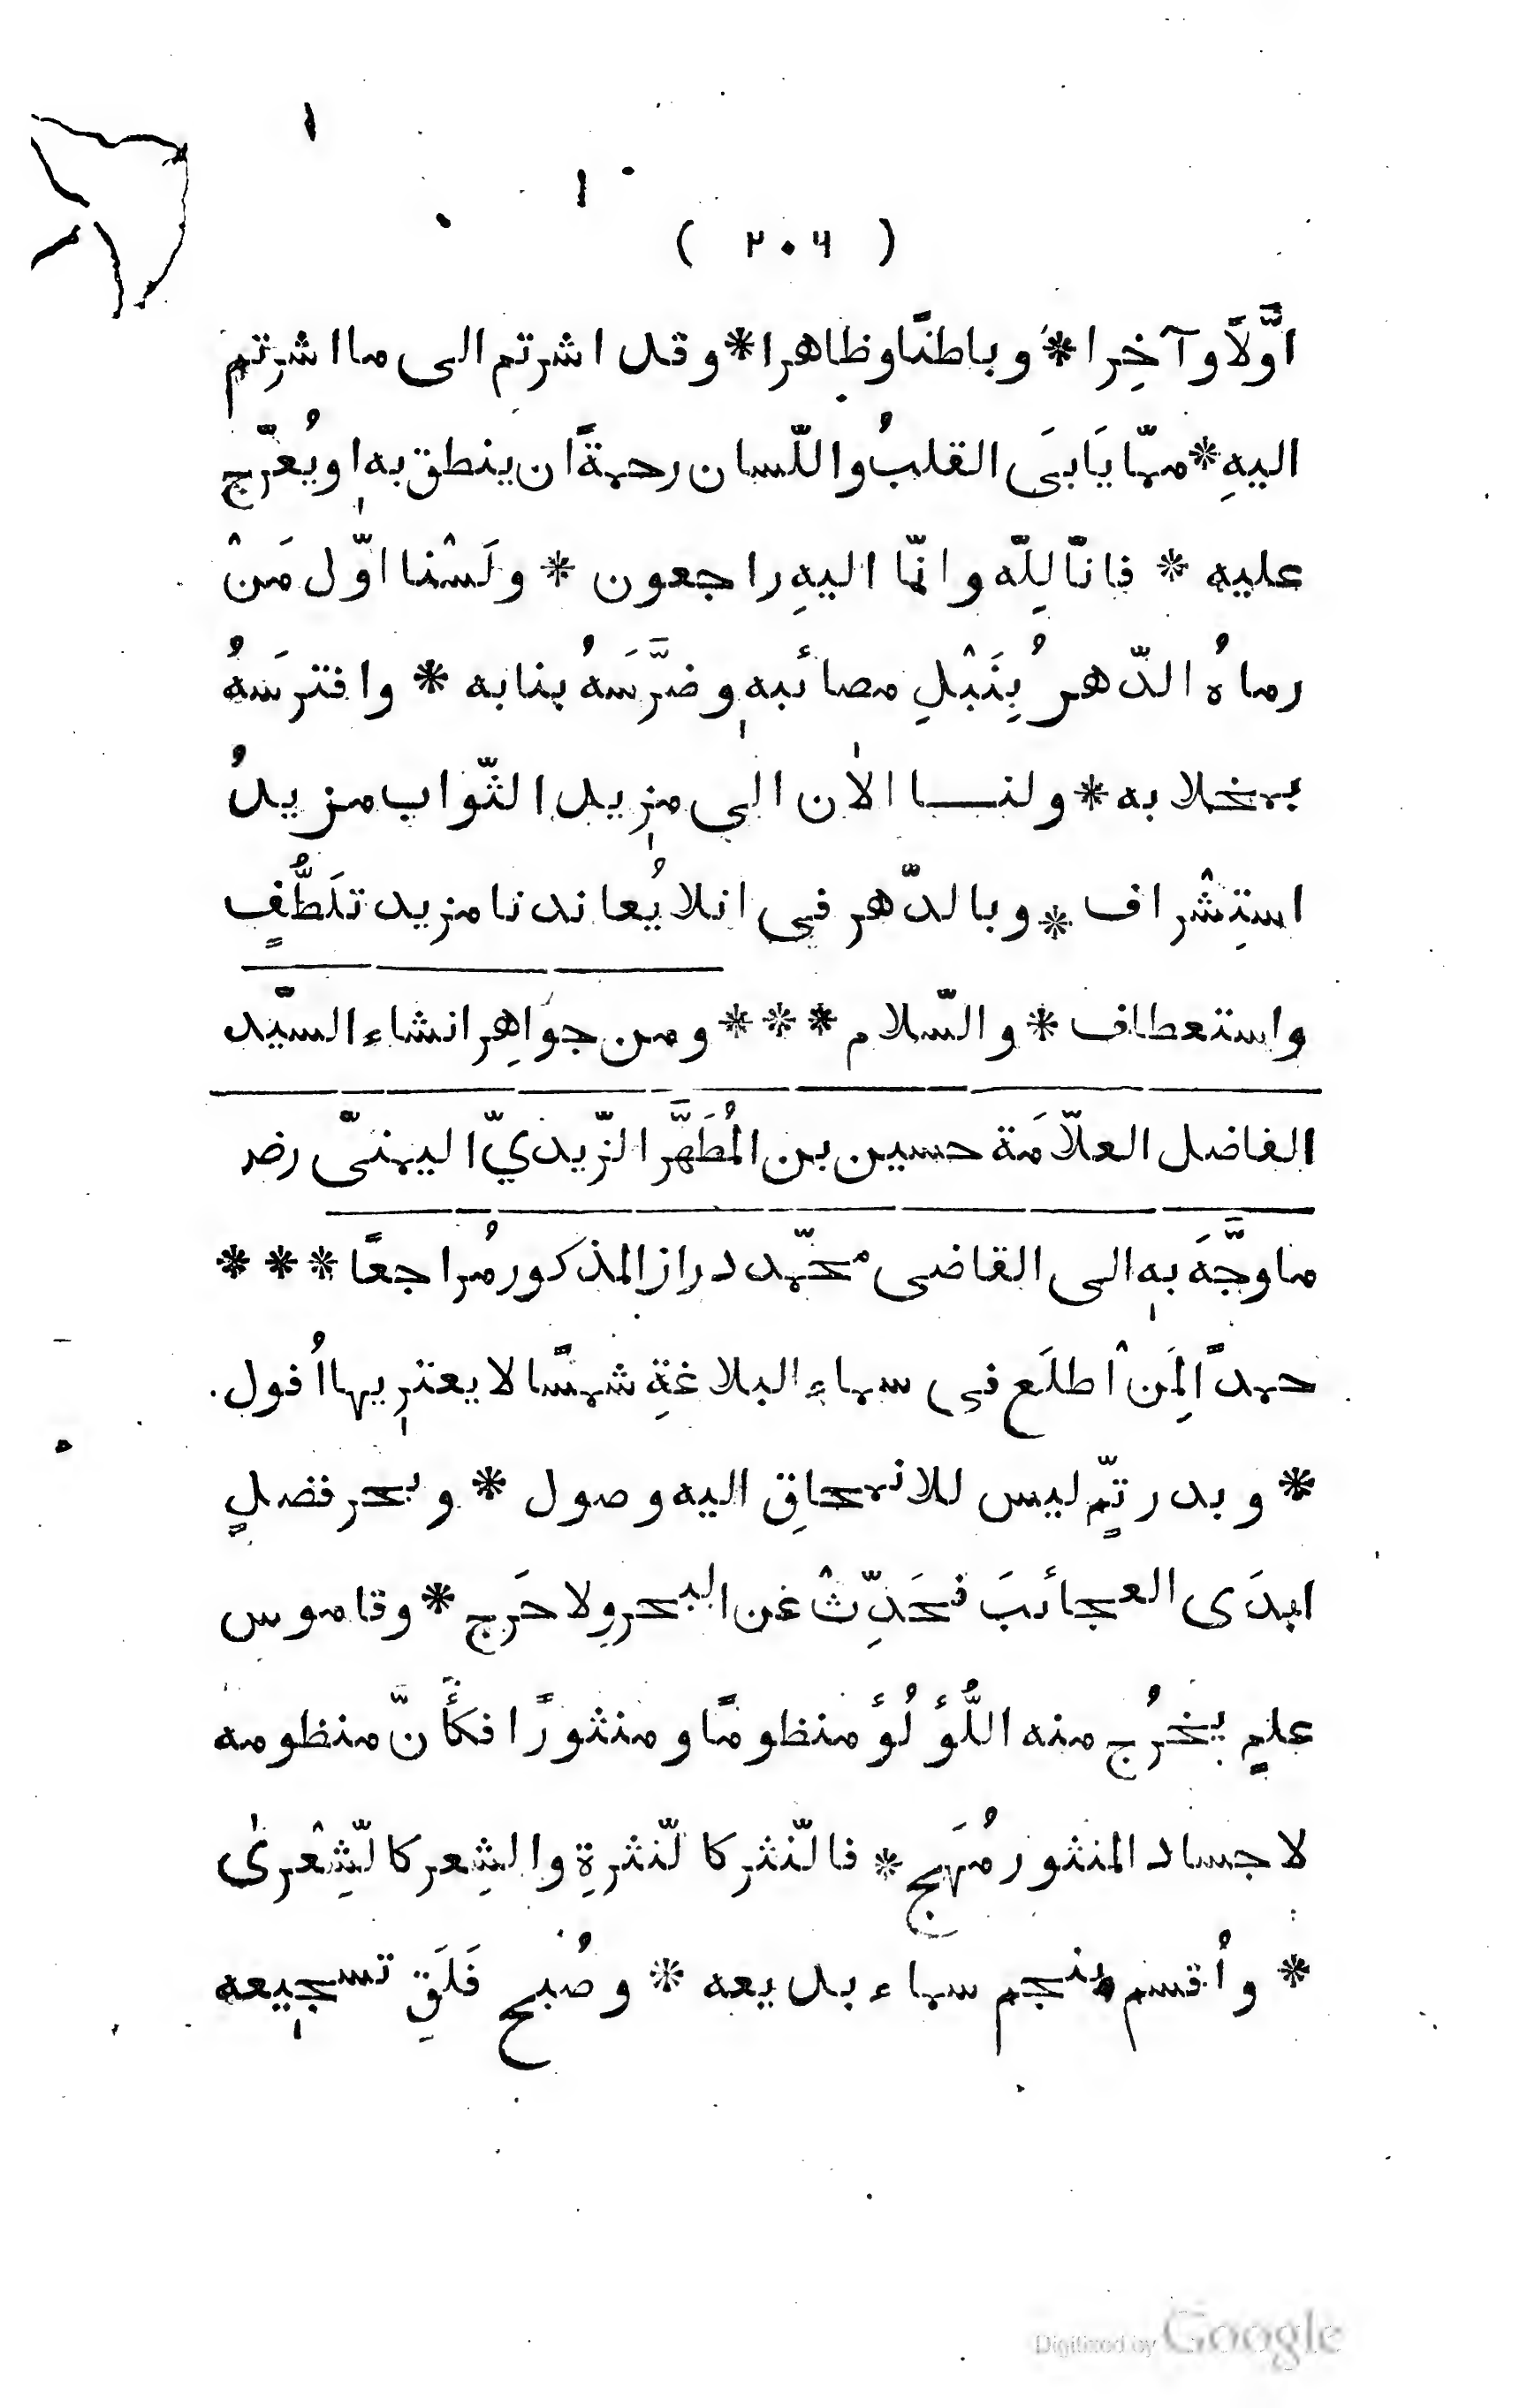 ( ٢٠٦ )
اوَّلًا وآخِرا * وباطنًا وظاهرا * وقد اشرتم الى ما اشرتم
اليهِ * ممّا يَابىَ القلبُ واللّسان رحمةً ان ينطق به او يُعرّج
عليه * فانّا لِلّه وانّا اليهِ راجعون * ولَسْنا اوّل مَنْ
رماهُ الدّهرُ بِنَبْلِ مصائبه وضرَّسَهُ بنابه * وافترسَهُ
بمخلابه * ولنا الان الى مزيد الثّواب مزيدُ
استِشْراف * وبالدّهر فى انلا يُعاندنا مزيد تلَطُّفٍ
واستعطاف * والسّلام * * * ومن جواهِر انشاء السيّد
الفاضل العلّامَة حسين بن المُطَهَّر الزّيديّ اليمنىّ رضر
ما وجَّهَ به الى القاضى محمّد دراز المذكور مُراجعًا * * *
حمدًا لِمَنْ اطلَع فى سماءِ البلاغةِ شمسًا لا يعتريها اُفول
* وبدر تمٍّ ليس للانمحاقِ اليه وصول * وبحر فضلٍ
ابدَى العجائبَ فحَدِّثْ عن البحر ولا حَرج * وقاموس
علمٍ يخرُج منه اللُّؤلُؤ منظومًا ومنثورًا فكأَنّ منظومه
لاجساد المنثور مُهَج * فالنّثر كالنّثرةِ والشِعر كالشِّعْرىٰ
* واُقسم بنجم سماء بديعه * وصُبح فَلَقِ تسجيعه
Digitized by Google